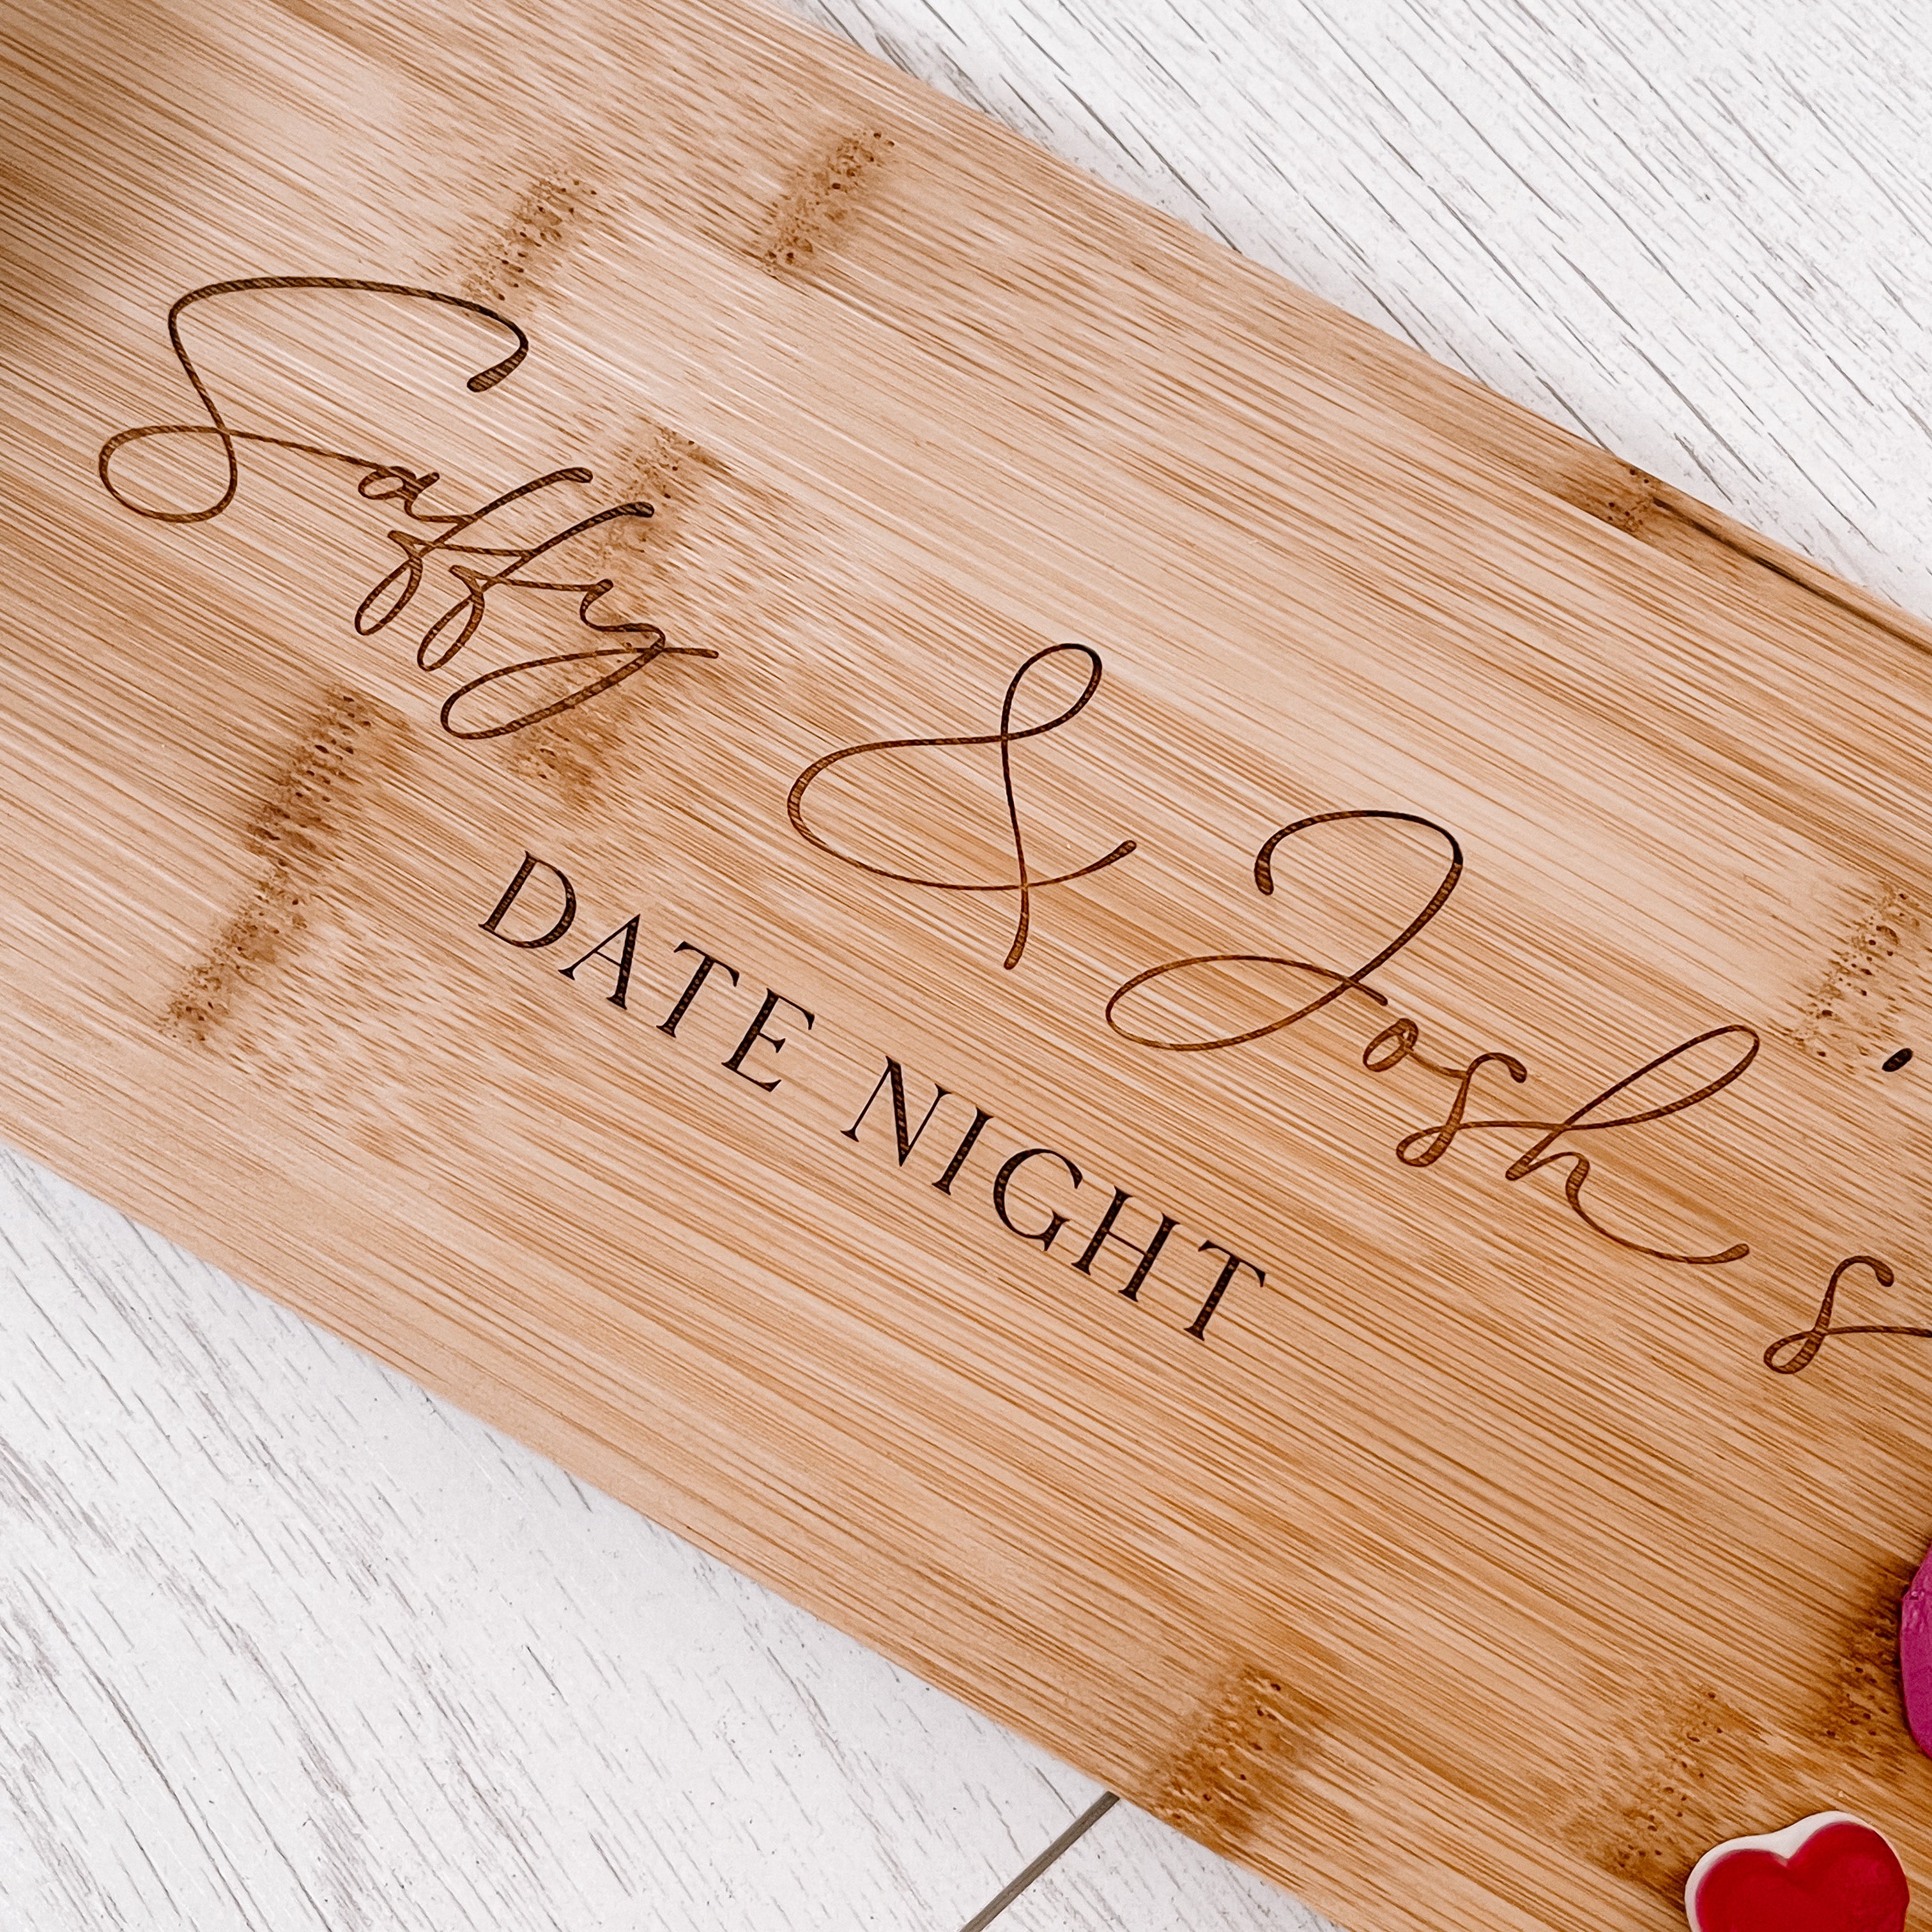 Saffy & Josh's
DATE NIGHT